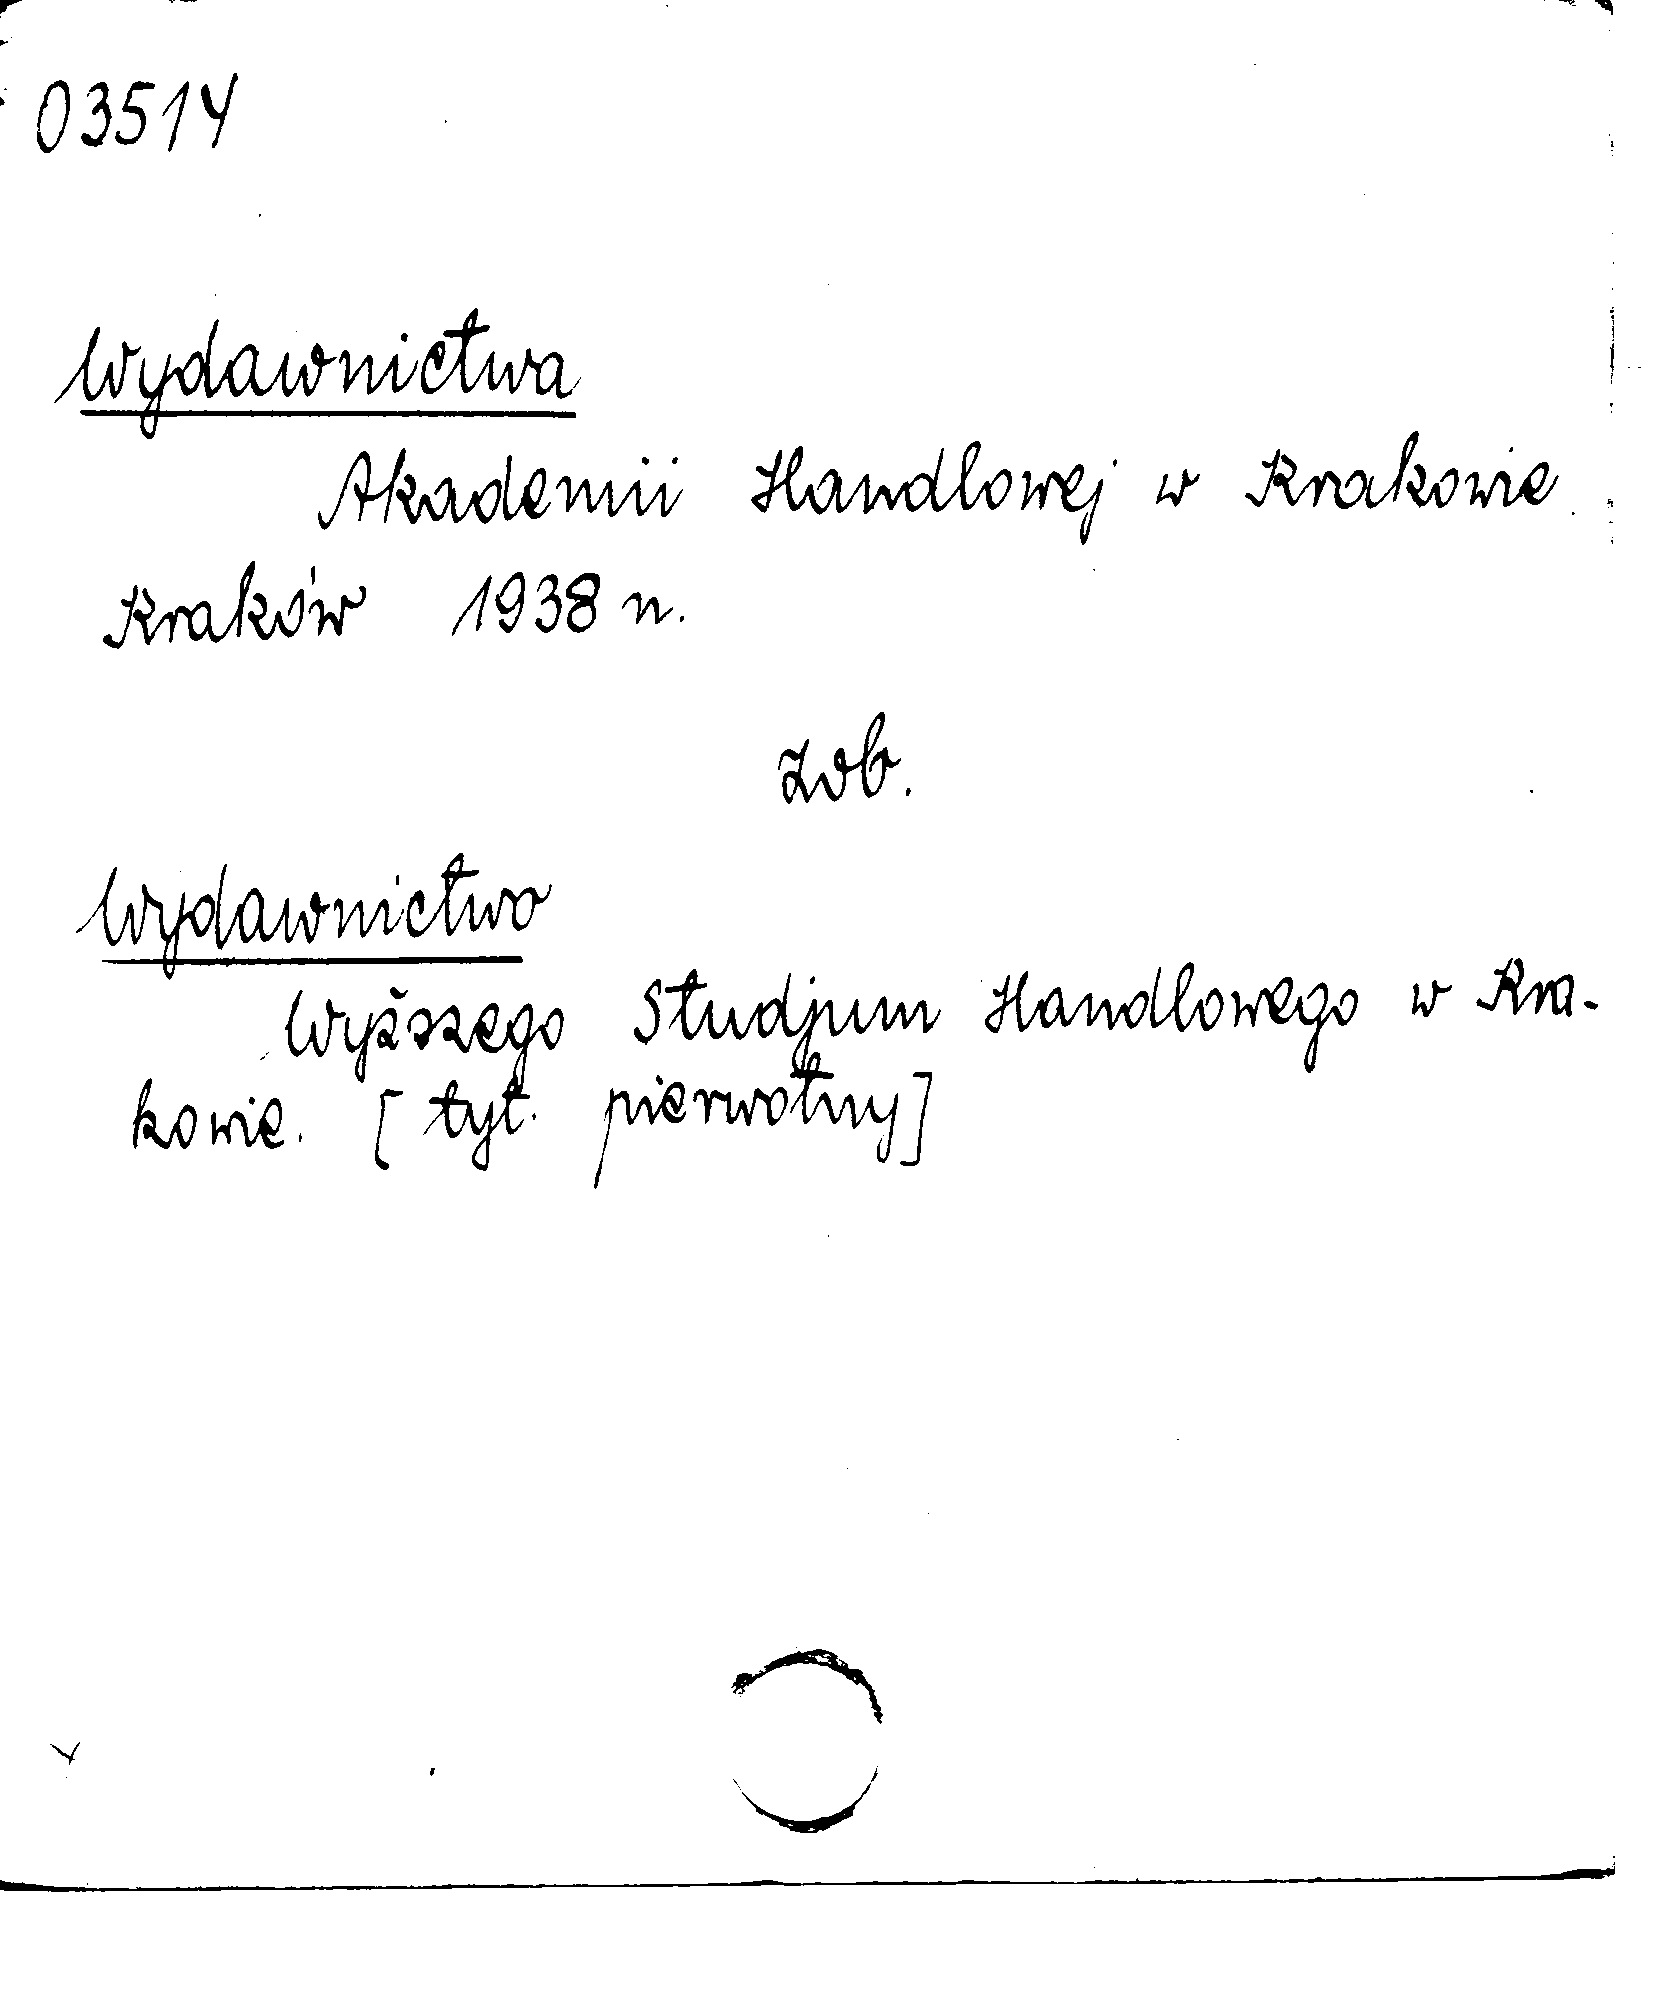 03514
Wydawnictwa
Akademii Handlowej w Krakowie
Kraków 1938 n.
zob.
Wydawnictwo
Wyższego Studjum Handlowego w Kra-
kowie. [tyt. pierwotny]